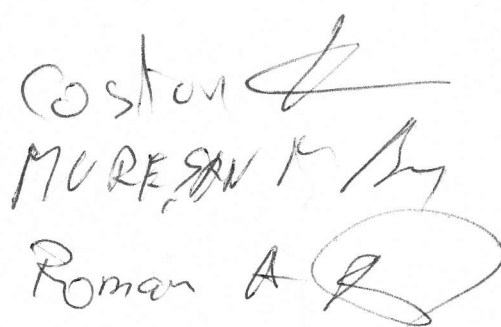 Coston
MUREȘAN M
Roman A